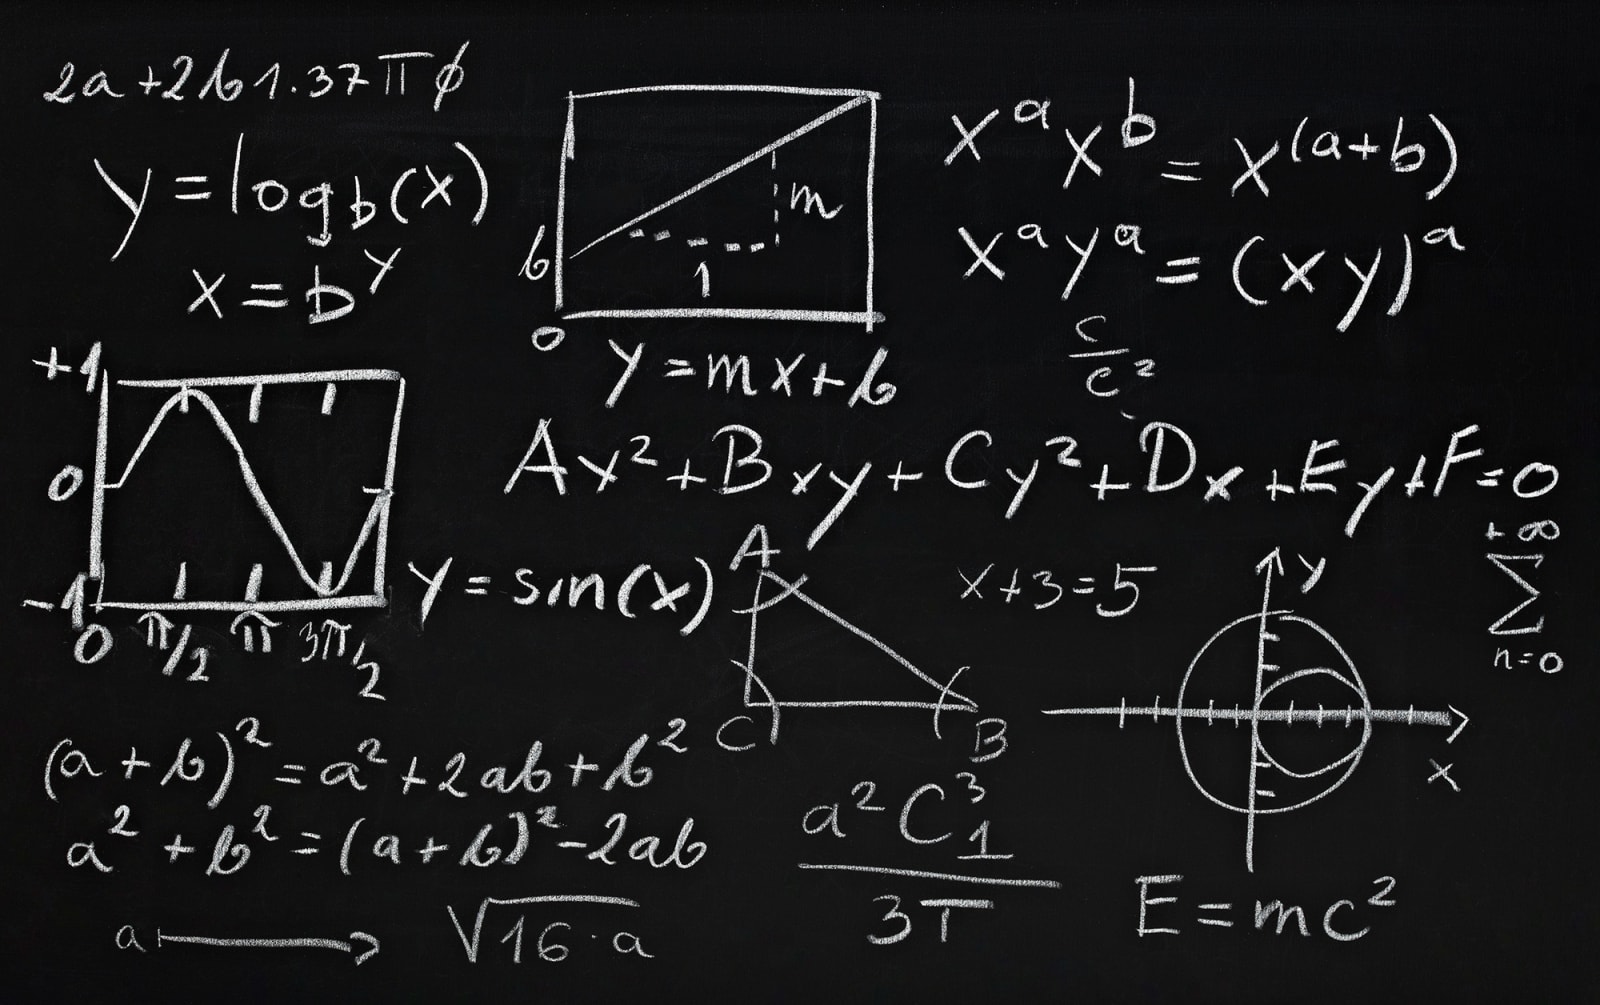 2a+2b1.37πϕ
y=log_b(x)
x=b^y
b
m
1
0
y=mx+b
x^a x^b = x^(a+b)
x^a y^a = (xy)^a
c/c^2
+1
0
-1
0 π/2 π 3π/2
y=sin(x)
Ax^2+Bxy+Cy^2+Dx+Ey+F=0
A
C
B
x+3=5
y
x
+∞
∑
n=0
(a+b)^2=a^2+2ab+b^2
a^2+b^2=(a+b)^2-2ab
a
√16·a
a^2C^3_1
3T
E=mc^2